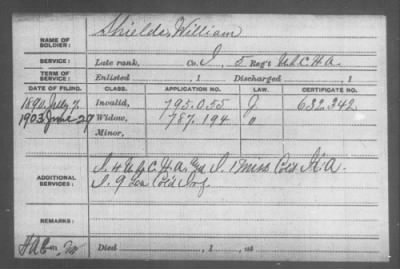 NAME OF SOLDIER: Shields, William
SERVICE: Late rank, Co. I, 5 Reg't U.S.C.H.A.
TERM OF SERVICE: Enlisted , 1 Discharged , 1
DATE OF FILING. CLASS. APPLICATION NO. LAW. CERTIFICATE NO.
1890 July 7. Invalid, 795.055 J. 632.342
1903 June 27 Widow, 787.194 "
Minor,
ADDITIONAL SERVICES: I. 4 U.S.C.H.A. I. 1 Miss. Cold H.A.
I. 9 La Cold Inf.
REMARKS:
Died , 1 , at